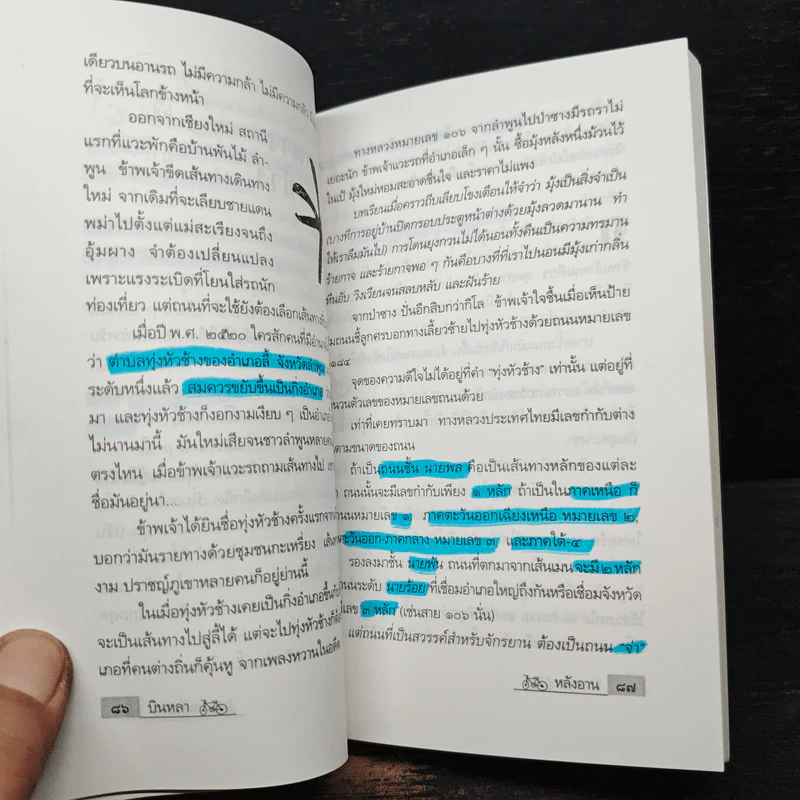 เดียวบนอานรถ ไม่มีความกล้า ไม่มีความกลัว
ที่จะเห็นโลกข้างหน้า
ออกจากเชียงใหม่ สถานี
แรกที่แวะพักคือบ้านพันไม้ ลำ-
พูน ข้าพเจ้าขีดเส้นทางเดินทาง
ใหม่ จากเดิมที่จะเลียบชายแดน
พม่าไปตั้งแต่แม่สะเรียงจนถึง
อุ้มผาง จำต้องเปลี่ยนแปลง
เพราะแรงระเบิดที่โยนใส่รถนัก
ท่องเที่ยว แต่ถนนที่จะใช้ยังต้องเลือกเส้นทาง
เมื่อปี พ.ศ. ๒๕๒๐ ใครสักคนที่มี
ว่า ตำบลทุ่งหัวช้างของอำเภอลี้ จังหวัดลำพูน
ระดับหนึ่งแล้ว สมควรขยับขึ้นเป็นกิ่งอำเภอ
มา และทุ่งหัวช้างก็งอกงามเงียบ ๆ เป็นอำเภอ
ไม่นานมานี้ มันใหม่เสียจนชาวลำพูนหลายคน
ตรงไหน เมื่อข้าพเจ้าแวะรถถามเส้นทางไป
ชื่อมันอยู่นา...
ข้าพเจ้าได้ยินชื่อทุ่งหัวช้างครั้งแรกจาก
บอกว่ามันรายทางด้วยชุมชนกะเหรี่ยง เส้น
งาม ปราชญ์ภูเขาหลายคนก็อยู่ย่านนี้
ในเมื่อทุ่งหัวช้างเคยเป็นกิ่งอำเภอขึ้นกับ
จะเป็นเส้นทางไปสู่ลี้ได้ แต่จะไปทุ่งหัวช้างก็
เภอที่คนต่างถิ่นก็คุ้นหู จากเพลงหวานในอดีต
๘๖ บินหลา
ทางหลวงหมายเลข ๑๐๖ จากลำพูนไปป่าซางมีรถราไม่
เยอะนัก ข้าพเจ้าแวะรถที่อำเภอเล็ก ๆ นั้น ซื้อมุ้งหลังหนึ่งม้วนไว้
ในเป้ มุ้งใหม่หอมสะอาดชื่นใจ และราคาไม่แพง
บทเรียนเมื่อคราวถีบเลียบโขงเตือนให้จำว่า มุ้งเป็นสิ่งจำเป็น
(บางทีการอยู่บ้านปิดกรอบประตูหน้าต่างด้วยมุ้งลวดมานาน ทำ
ให้เราลืมมันไป) การโดนยุงกวนไม่ได้นอนทั้งคืนเป็นความทรมาน
ร้ายกาจ และร้ายกาจพอ ๆ กันคือบางที่ที่เราไปนอนมีมุ้งเก่ากลิ่น
หืนอับ วิงเวียนจนสลบหลับ และฝันร้าย
จากป่าซาง ปั่นอีกสิบกว่ากิโล ข้าพเจ้าใจชื้นเมื่อเห็นป้าย
มถนนชี้ลูกศรบอกทางเลี้ยวซ้ายไปทุ่งหัวช้างด้วยถนนหมายเลข
๑๘๔
จุดของความดีใจไม่ได้อยู่ที่คำ "ทุ่งหัวช้าง" เท่านั้น แต่อยู่ที่
นวนตัวเลขของหมายเลขถนนด้วย
เท่าที่เคยทราบมา ทางหลวงประเทศไทยมีเลขกำกับต่าง
ตามขนาดของถนน
ถ้าเป็นถนนชั้น นายพล คือเป็นเส้นทางหลักของแต่ละ
ถนนนั้นจะมีเลขกำกับเพียง ๑ หลัก ถ้าเป็นในภาคเหนือ ก็
นนหมายเลข ๑ ภาคตะวันออกเฉียงเหนือ หมายเลข ๒,
ตะวันออก-ภาคกลาง หมายเลข ๓ และภาคใต้-๔
รองลงมาชั้น นายพัน ถนนที่ตกมาจากเส้นเมน จะมี ๒ หลัก
นนระดับ นายร้อย ที่เชื่อมอำเภอใหญ่ถึงกันหรือเชื่อมจังหวัด
เลข ๓ หลัก (เช่นสาย ๑๐๖ นั่น)
แต่ถนนที่เป็นสวรรค์สำหรับจักรยาน ต้องเป็นถนน "จ่า"
หลังอาน ๘๗